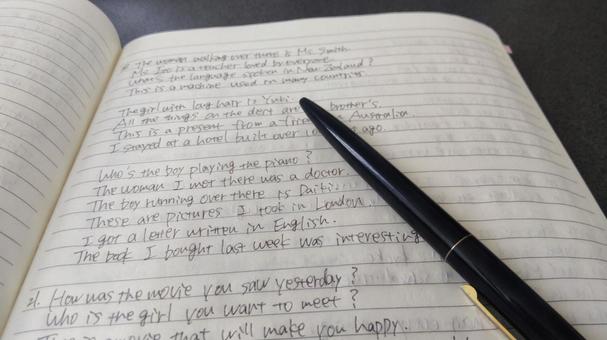 * The woman walking over there is Ms. Smith
Ms. Ito is a teacher loved by everyone
What's the language spoken in New Zealand?
This is a machine used in many countries.
The girl with long hair is Yuki.
All the things on the desk are brother's.
This is a present from a Australia.
I stayed at a hotel built over ago.
Who's the boy playing the piano?
The woman I met there was a doctor.
The boy running over there is
These are pictures I took in London.
I got a letter written in English.
The book I bought last week was interesting
How was the movie you saw yesterday?
Who is the girl you want to meet?
that will make you happy.